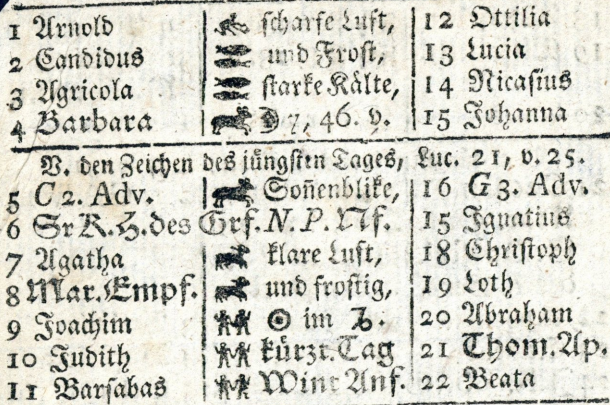 1 Arnold scharfe Luft, 12 Ottilia
2 Candidus und Frost, 13 Lucia
3 Agricola starke Kälte, 14 Nicasius
4 Barbara ☽ 7, 46. v. 15 Johanna
V. den Zeichen des jüngsten Tages, Luc. 21, v. 25.
5 C 2. Adv. Soñenblike, 16 G 3. Adv.
6 Sr K. H. des Grf. N. P. Nf. 15 Ignatius
7 Agatha klare Luft, 18 Christoph
8 Mar. Empf. und frostig, 19 Loth
9 Joachim ☉ im ♑. 20 Abraham
10 Judith kürzt. Tag 21 Thom. Ap.
11 Barsabas Wint Anf. 22 Beata